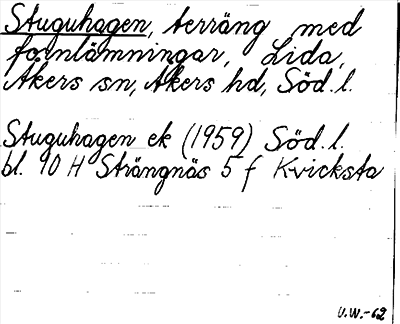 Stuguhagen, terräng med
fornlämningar, Lida,
Åkers sn, Åkers hd, Söd. l.
Stuguhagen ek (1959) Söd. l.
bl. 10 H Strängnäs 5 f Kvicksta
U.W.-62